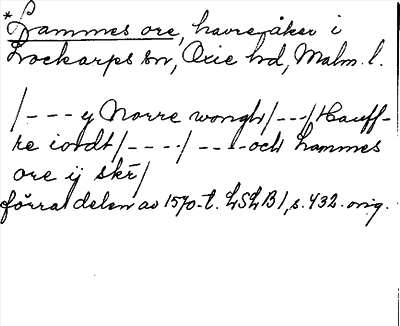 *Lammes ore, havreåker i
Lockarps sn, Oxie hd, Malm. l.
/--- y Norre wongh/---/Hauff-
re iordt/----/----och Lammes
ore ij skr/
förra delen av 1570-t. LSLB1, s. 432. orig.